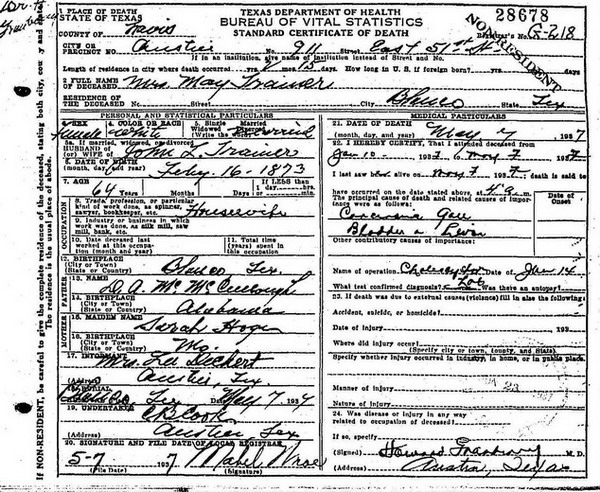 TEXAS DEPARTMENT OF HEALTH
BUREAU OF VITAL STATISTICS
STANDARD CERTIFICATE OF DEATH
28678
NON-RESIDENT
Registrar's No. G-218
1 PLACE OF DEATH
STATE OF TEXAS
COUNTY OF Travis
CITY OR PRECINCT NO. Austin No. 911 Street East 51st St.
If in an institution, give name of institution instead of Street and No.
Length of residence in city where death occurred yrs. mos. 15 days. How long in U. S. if foreign born? yrs. mos. days
2 FULL NAME OF DECEASED Mrs. May Trainer
RESIDENCE OF THE DECEASED No. Street City Blanco State Tex
If NON-RESIDENT, be careful to give the complete residence of the deceased, stating both city, county and state.
The residence is the usual place of abode.
PERSONAL AND STATISTICAL PARTICULARS
3. SEX female
4. COLOR OR RACE White
5. Single Married Widowed Divorced married
5a. If married, widowed, or divorced
HUSBAND OF (or) WIFE OF John L. Trainer
6. DATE OF BIRTH (month, day, year) Feby. 16-1873
7. AGE 64 Years Months Days If LESS than 1 day hrs. min.
OCCUPATION
8. Trade, profession, or particular kind of work done, as spinner, sawyer, bookkeeper, etc. Housewife
9. Industry or business in which work was done, as silk mill, saw mill, bank, etc.
10. Date deceased last worked at this occupation (month and year)
11. Total time (years) spent in this occupation
12. BIRTHPLACE (City or Town) (State or Country) Blanco, Tex.
FATHER
13. NAME D. A. McCullough
14. BIRTHPLACE (City or Town) (State or Country) Alabama
MOTHER
15. MAIDEN NAME Sarah
16. BIRTHPLACE (City or Town) (State or Country) Mo.
17. INFORMANT Mrs. Deckert
(Address) Austin, Tex
18. BURIAL Blanco, Tex May 7, 1937
19. UNDERTAKER C.B. Cook
(Address) Austin Tex
20. SIGNATURE AND FILE DATE OF LOCAL REGISTRAR
5-7 1937 Mabel
(File Date) (Signature)
MEDICAL PARTICULARS
21. DATE OF DEATH (month, day, and year) May 7 1937
22. I HEREBY CERTIFY, That I attended deceased from
Jan 10 1937 to May 7 1937
I last saw alive on May 7 1937 death is said to
have occurred on the date stated above, at 4 a m.
The principal cause of death and related causes of importance were as follows:
Date of Onset
Carcinoma Gall
Bladder & Liver
Other contributory causes of importance:
Name of operation Date of Jan 14
What test confirmed diagnosis? Lab Was there an autopsy?
23. If death was due to external causes (violence) fill in also the following:
Accident, suicide, or homicide?
Date of injury 193
Where did injury occur?
(Specify city or town, county, and State)
Specify whether injury occurred in industry, in home, or in public place.
Manner of injury
Nature of injury
24. Was disease or injury in any way related to occupation of deceased?
If so, specify
(Signed) Howard M. D.
(Address) Austin, Texas